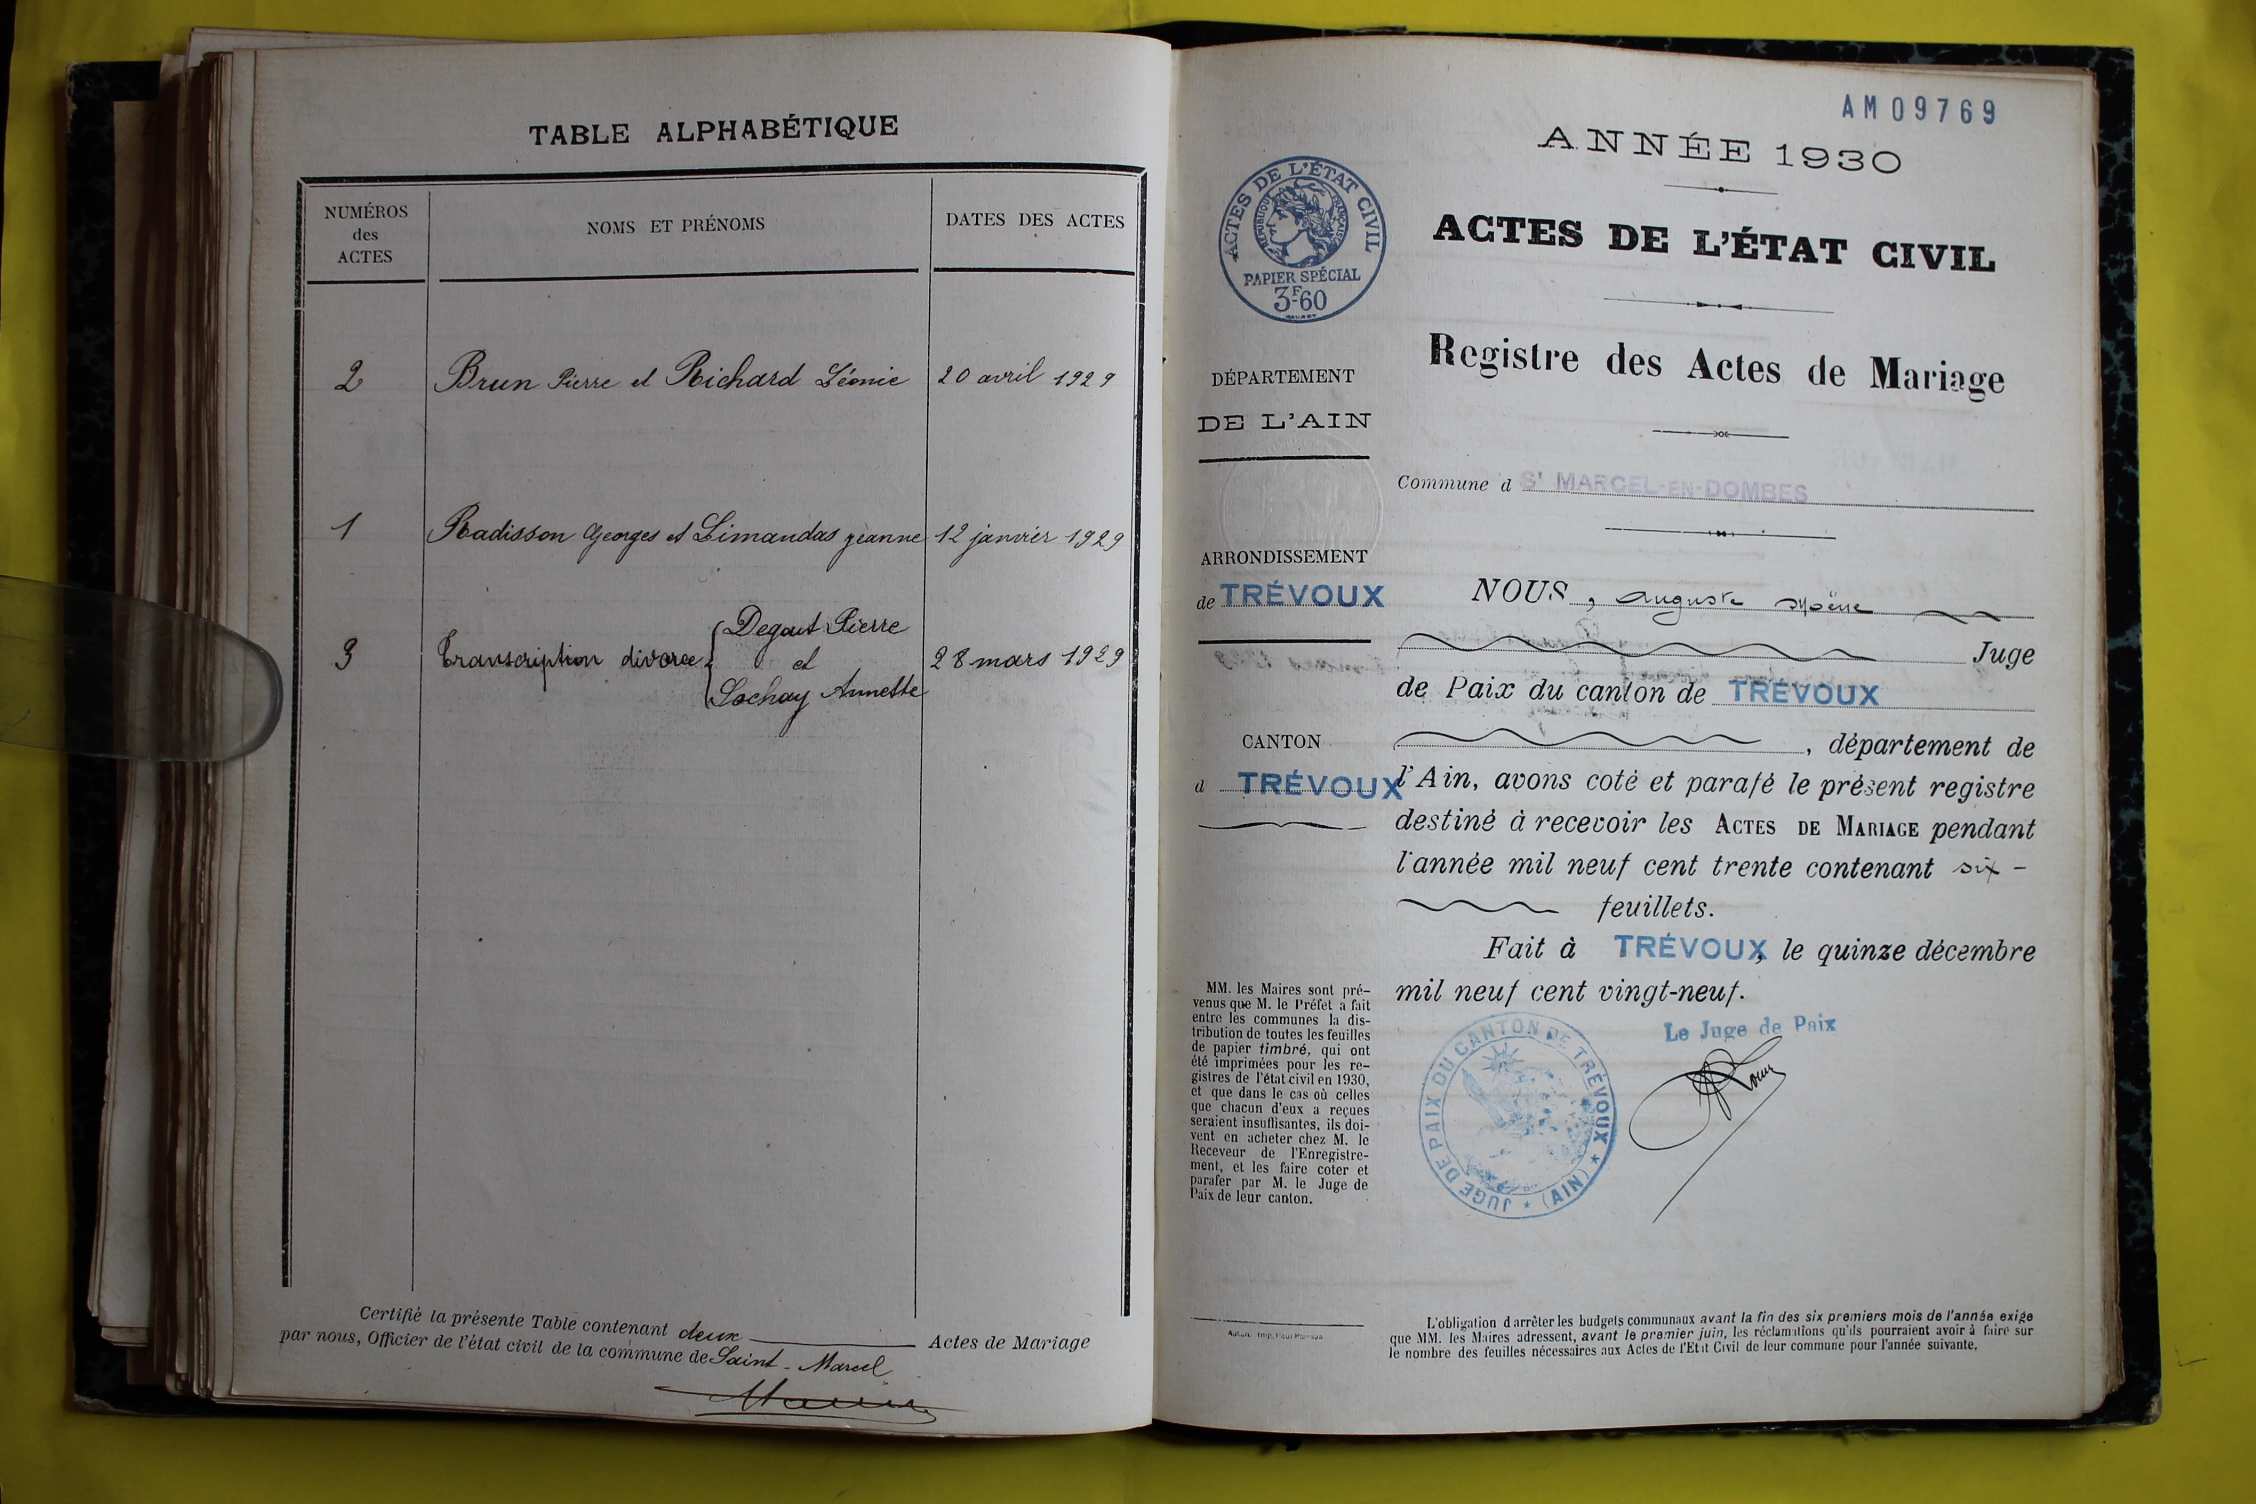 TABLE ALPHABÉTIQUE
NUMÉROS
des
ACTES
NOMS ET PRÉNOMS
DATES DES ACTES
2 Brun Pierre et Richard Léonie 20 avril 1929
1 Radisson Georges et Limandas Jeanne 12 janvier 1929
3 Transcription divorce { Degout Pierre
et
Lochay Annette
28 mars 1929
Certifié la présente Table contenant deux Actes de Mariage
par nous, Officier de l'état civil de la commune de Saint-Marcel
AM09769
ANNÉE 1930
ACTES DE L'ÉTAT CIVIL
RÉPUBLIQUE FRANÇAISE
PAPIER SPÉCIAL
3F60
ACTES DE L'ÉTAT CIVIL
Registre des Actes de Mariage
DÉPARTEMENT
DE L'AIN
Commune d St MARCEL-EN-DOMBES
ARRONDISSEMENT
de TRÉVOUX
CANTON
d TRÉVOUX
NOUS, Auguste
Juge
de Paix du canton de TRÉVOUX
, département de
l'Ain, avons coté et parafé le présent registre
destiné à recevoir les ACTES DE MARIAGE pendant
l'année mil neuf cent trente contenant six -
feuillets.
Fait à TRÉVOUX, le quinze décembre
mil neuf cent vingt-neuf.
Le Juge de Paix
JUGE DE PAIX DU CANTON DE TRÉVOUX * (AIN) *
MM. les Maires sont pré-
venus que M. le Préfet a fait
entre les communes la dis-
tribution de toutes les feuilles
de papier timbré, qui ont
été imprimées pour les re-
gistres de l'état civil en 1930,
et que dans le cas où celles
que chacun d'eux a reçues
seraient insuffisantes, ils doi-
vent en acheter chez M. le
Receveur de l'Enregistre-
ment, et les faire coter et
parafer par M. le Juge de
Paix de leur canton.
L'obligation d'arrêter les budgets communaux avant la fin des six premiers mois de l'année exige
que MM. les Maires adressent, avant le premier juin, les réclamations qu'ils pourraient avoir à faire sur
le nombre des feuilles nécessaires aux Actes de l'Etat Civil de leur commune pour l'année suivante.